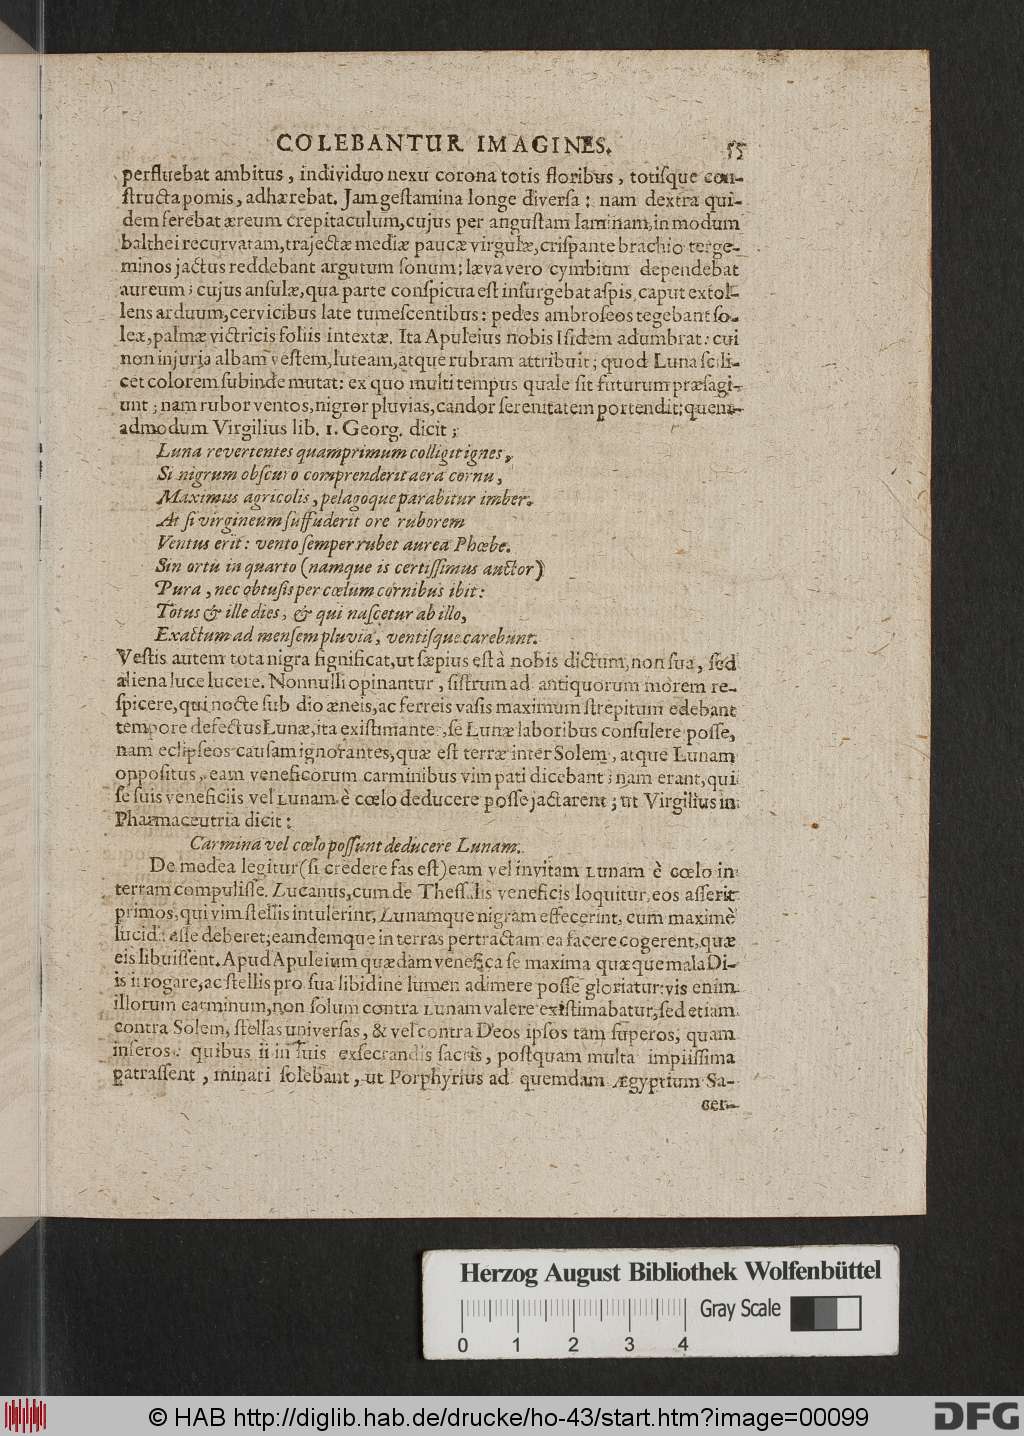 COLEBANTUR IMAGINES. 55
perfluebat ambitus, individuo nexu corona totis floribus, totisque con-
structa pomis, adhærebat. Jam gestamina longe diversa: nam dextra qui-
dem ferebat æreum crepitaculum, cujus per angustam laminam, in modum
balthei recurvatam, trajectæ mediæ paucæ virgulæ, crispante brachio terge-
minos jactus reddebant argutum sonum; læva vero cymbium dependebat
aureum; cujus ansulæ, qua parte conspicua est insurgebat aspis caput extol-
lens arduum, cervicibus late tumescentibus: pedes ambroseos tegebant so-
leæ, palmæ victricis foliis intextæ. Ita Apuleius nobis Isidem adumbrat: cui
non injuria albam vestem, luteam, atque rubram attribuit; quod Luna scili-
cet colorem subinde mutat: ex quo multi tempus quale sit futurum præsagi-
unt; nam rubor ventos, nigror pluvias, candor serenitatem portendit; quem-
admodum Virgilius lib. 1. Georg. dicit;
Luna revertentes quamprimum colligit ignes,
Si nigrum obscuro comprenderit aera cornu,
Maximus agricolis, pelagoque parabitur imber.
At si virgineum suffuderit ore ruborem
Ventus erit: vento semper rubet aurea Phœbe.
Sin ortu in quarto (namque is certissimus auctor)
Pura, nec obtusis per cœlum cornibus ibit:
Totus & ille dies, & qui nascetur ab illo,
Exactum ad mensem pluvia, ventisque carebunt.
Vestis autem tota nigra significat, ut sæpius est à nobis dictum, non sua, sed
aliena luce lucere. Nonnulli opinantur, sistrum ad antiquorum morem re-
spicere, qui nocte sub dio æneis, ac ferreis vasis maximum strepitum edebant
tempore defectus Lunæ, ita existimantes, se Lunæ laboribus consulere posse,
nam eclipseos causam ignorantes, quæ est terræ inter Solem, atque Lunam
oppositus, eam veneficorum carminibus vim pati dicebant; nam erant, qui
se suis veneficiis vel Lunam è cœlo deducere posse jactarent; ut Virgilius in
Pharmaceutria dicit:
Carmina vel cœlo possunt deducere Lunam.
De medea legitur (si credere fas est) eam vel invitam Lunam è cœlo in
terram compulisse. Lucanus, cum de Thessalis veneficis loquitur, eos asserit
primos, qui vim stellis intulerint, Lunamque nigram effecerint, cum maximè
lucida esse deberet; eamdemque in terras pertractam ea facere cogerent, quæ
eis libuissent. Apud Apuleium quædam venefica se maxima quæque mala Di-
is irrogare, ac stellis pro sua libidine lumen adimere posse gloriatur: vis enim
illorum carminum, non solum contra Lunam valere existimabatur, sed etiam
contra Solem, stellas universas, & vel contra Deos ipsos tam superos, quam
inferos: quibus ii in suis exsecrandis sacris, postquam multa impiissima
patrassent, minari solebant, ut Porphyrius ad quemdam Ægyptium Sa-
cer-
Herzog August Bibliothek Wolfenbüttel
Gray Scale
0 1 2 3 4
© HAB http://diglib.hab.de/drucke/ho-43/start.htm?image=00099
DFG